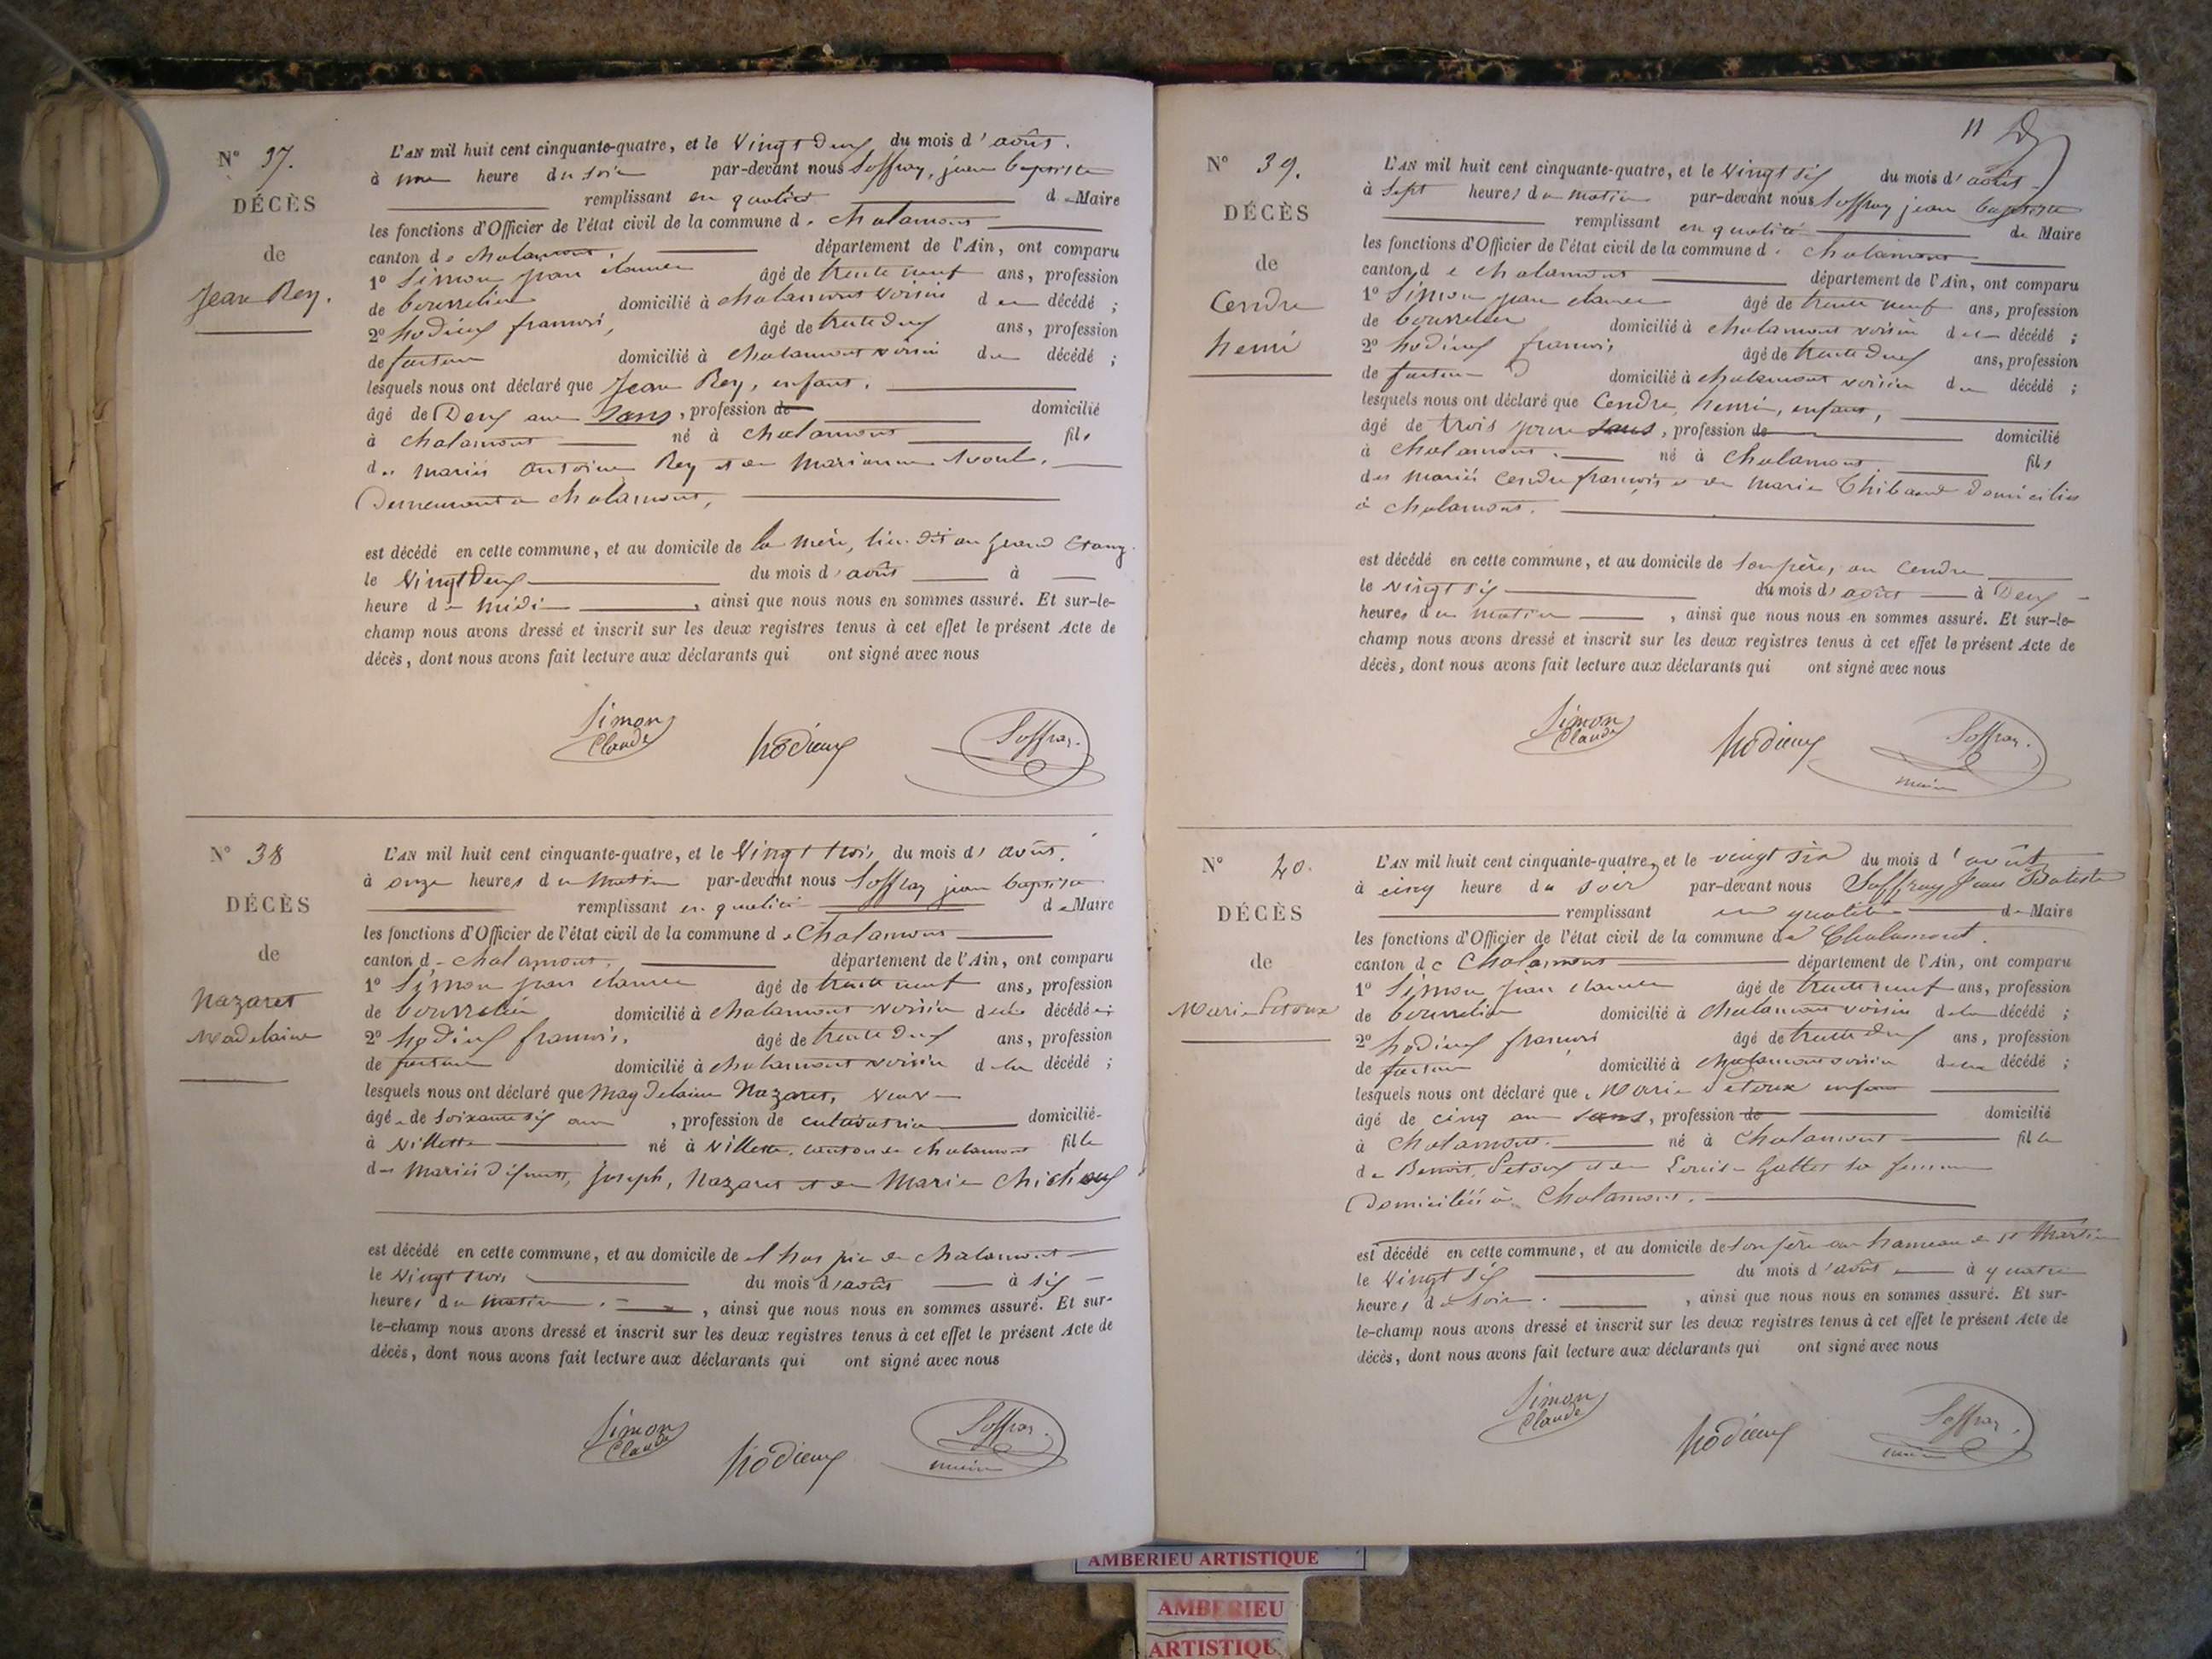 N° 37.
DÉCÈS
de
Jean Rey.
L'AN mil huit cent cinquante-quatre, et le vingt deux du mois d'août.
à une heure du soir par-devant nous Soffray, jean baptiste
remplissant en qualité de Maire
les fonctions d'Officier de l'état civil de la commune de chalamont
canton de chalamont. département de l'Ain, ont comparu
1° Simon jean claude âgé de trente neuf ans, profession
de bourrelier domicilié à chalamont voisin du décédé ;
2° hodieux françois, âgé de trente deux ans, profession
de facteur domicilié à chalamont voisin du décédé ;
lesquels nous ont déclaré que Jean Rey, enfant,
âgé de Deux ans sans, profession de domicilié
à chalamont né à chalamont fils
des mariés antoine Rey et de marianne
Demeurant a chalamont,
est décédé en cette commune, et au domicile de la mère, lieu dit au grand Etang.
le vingt Deux du mois d'août à
heure de midi, ainsi que nous nous en sommes assuré. Et sur-le-
champ nous avons dressé et inscrit sur les deux registres tenus à cet effet le présent Acte de
décès, dont nous avons fait lecture aux déclarants qui ont signé avec nous
Simon Claude
hodieux
Soffray.
N° 38
DÉCÈS
de
Nazaret
Madelaine
L'AN mil huit cent cinquante-quatre, et le vingt trois du mois d'août.
à onze heures du matin par-devant nous Soffray jean baptiste
remplissant en qualité de Maire
les fonctions d'Officier de l'état civil de la commune de Chalamont
canton de chalamont. département de l'Ain, ont comparu
1° Simon jean claude âgé de trente neuf ans, profession
de bourrelier domicilié à chalamont voisin de la décédée ;
2° hodieux françois, âgé de trente deux ans, profession
de facteur domicilié à chalamont voisin de la décédé ;
lesquels nous ont déclaré que Magdelaine Nazaret, veuve
âgée de soixante six ans, profession de cultivatrice domicilié
à villette né à villette, canton de chalamont fille
des mariés défunts, Joseph, Nazaret et de Marie Chicheux
est décédé en cette commune, et au domicile de l'hospice de chalamont
le vingt trois du mois d'août à six
heures du matin, ainsi que nous nous en sommes assuré. Et sur-
le-champ nous avons dressé et inscrit sur les deux registres tenus à cet effet le présent Acte de
décès, dont nous avons fait lecture aux déclarants qui ont signé avec nous
Simon Claude
hodieux
Soffray.
maire
11
N° 39.
DÉCÈS
de
Cendre
henri
L'AN mil huit cent cinquante-quatre, et le vingt six du mois d'août
à sept heures du matin par-devant nous Soffray jean baptiste
remplissant en qualité de Maire
les fonctions d'Officier de l'état civil de la commune de chalamont
canton de chalamont département de l'Ain, ont comparu
1° Simon jean claude âgé de trente neuf ans, profession
de bourrelier domicilié à chalamont voisin du décédé ;
2° hodieux françois âgé de trente deux ans, profession
de facteur domicilié à chalamont voisin du décédé ;
lesquels nous ont déclaré que Cendre, henri, enfant,
âgé de trois jours sans, profession de domicilié
à chalamont. né à chalamont fils
des mariés Cendre françois et de marie Thibaud domiciliés
à chalamont.
est décédé en cette commune, et au domicile de son père, au Cendre
le vingt six du mois d'août à Deux
heures du matin, ainsi que nous nous en sommes assuré. Et sur-le-
champ nous avons dressé et inscrit sur les deux registres tenus à cet effet le présent Acte de
décès, dont nous avons fait lecture aux déclarants qui ont signé avec nous
Simon Claude
hodieux
Soffray.
maire
N° 40.
DÉCÈS
de
Marie Petoux
L'AN mil huit cent cinquante-quatre, et le vingt six du mois d'août
à cinq heure du soir par-devant nous Soffray Jean Batiste
remplissant en qualité de Maire
les fonctions d'Officier de l'état civil de la commune de Chalamont.
canton de Chalamont département de l'Ain, ont comparu
1° Simon jean claude âgé de trente neuf ans, profession
de bourrelier domicilié à chalamont voisin de la décédé ;
2° hodieux françois âgé de trente deux ans, profession
de facteur domicilié à chalamont voisin de la décédé ;
lesquels nous ont déclaré que Marie Petoux enfant
âgé de cinq ans sans, profession de domicilié
à Chalamont. né à Chalamont fille
de Benoit Petoux et de Louise Gallet sa femme
Domiciliés à Chalamont.
est décédé en cette commune, et au domicile de son père au hameau de St Martin
le vingt six du mois d'août à quatre
heures du soir. , ainsi que nous nous en sommes assuré. Et sur-
le-champ nous avons dressé et inscrit sur les deux registres tenus à cet effet le présent Acte de
décès, dont nous avons fait lecture aux déclarants qui ont signé avec nous
Simon Claude
hodieux
Soffray.
maire
AMBERIEU ARTISTIQUE
AMBERIEU
ARTISTIQUE